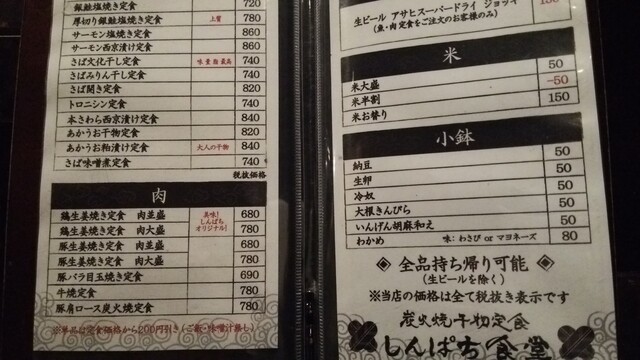 銀鮭塩焼き定食 720
厚切り銀鮭塩焼き定食 上質 780
サーモン塩焼き定食 860
サーモン西京漬け定食 860
さば文化干し定食 味量脂最高 740
さばみりん干し定食 740
さば開き定食 820
トロニシン定食 740
本さわら西京漬け定食 820
あかうお干物定食 840
あかうお粕漬け定食 大人の干物 840
さば味噌煮定食 740
税抜価格
肉
鶏生姜焼き定食 肉並盛 680
鶏生姜焼き定食 肉大盛 780
美味!
しんぱち
オリジナル!
豚生姜焼き定食 肉並盛 680
豚生姜焼き定食 肉大盛 780
豚バラ目玉焼き定食 690
牛焼き定食 780
豚肩ロース炭火焼定食 780
※単品は定食価格から200円引き(ご飯・味噌汁無し)
生ビール アサヒスーパードライ ジョッキ
(魚・肉定食をご注文のお客様のみ)
米
米大盛 50
米半割 -50
米お替り 150
小鉢
納豆 50
生卵 50
冷奴 50
大根きんぴら 50
いんげん胡麻和え 50
わかめ 味:わさび or マヨネーズ 80
全品持ち帰り可能
(生ビールを除く)
※当店の価格は全て税抜き表示です
炭火焼干物定食
しんぱち食堂